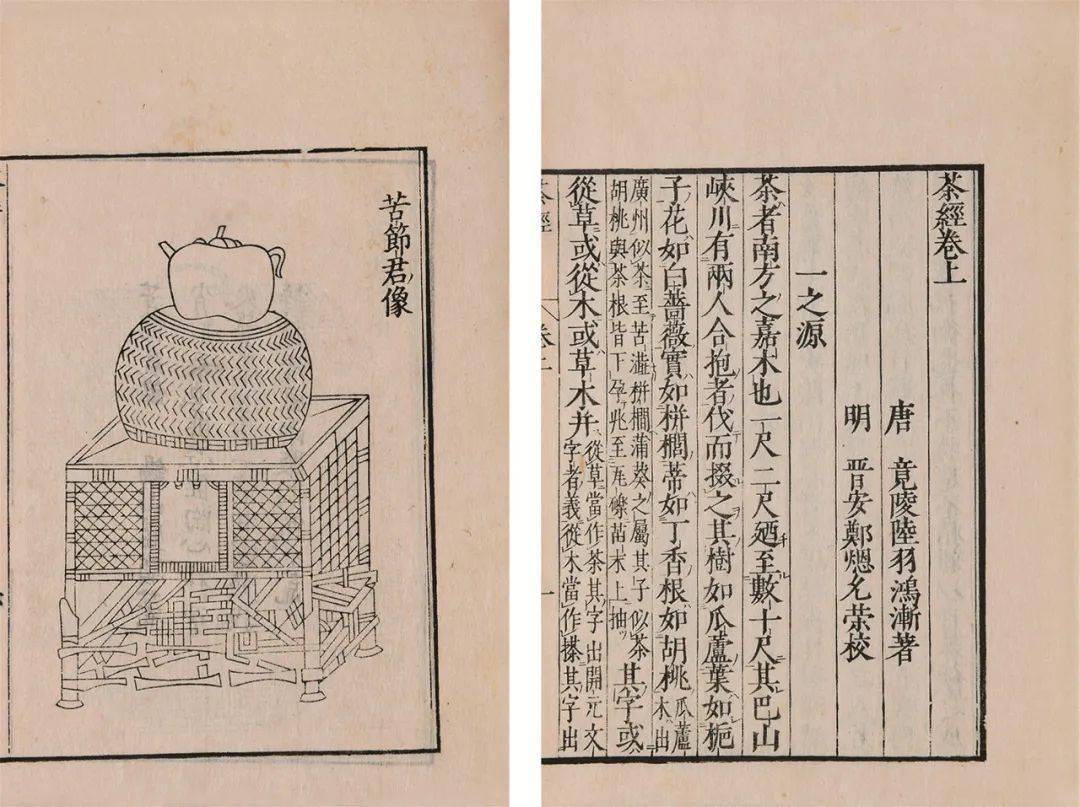 茶經卷上
唐 竟陵陸羽鴻漸著
明 晋安鄭熜允榮校
一之源
茶者南方之嘉木也一尺二尺廼至數十尺其巴山
峽川有兩人合抱者伐而掇之其樹如瓜蘆葉如梔
子花如白薔薇實如栟櫚蒂如丁香根如胡桃瓜蘆木出
廣州似茶至苦澁栟櫚蒲葵之屬其子似茶
胡桃與茶根皆下孕兆至瓦礫苗木上抽其字或
從草或從木或草木并從草當作茶其字出開元文
字者義從木當作搽其字出
茶經
一
苦節君像